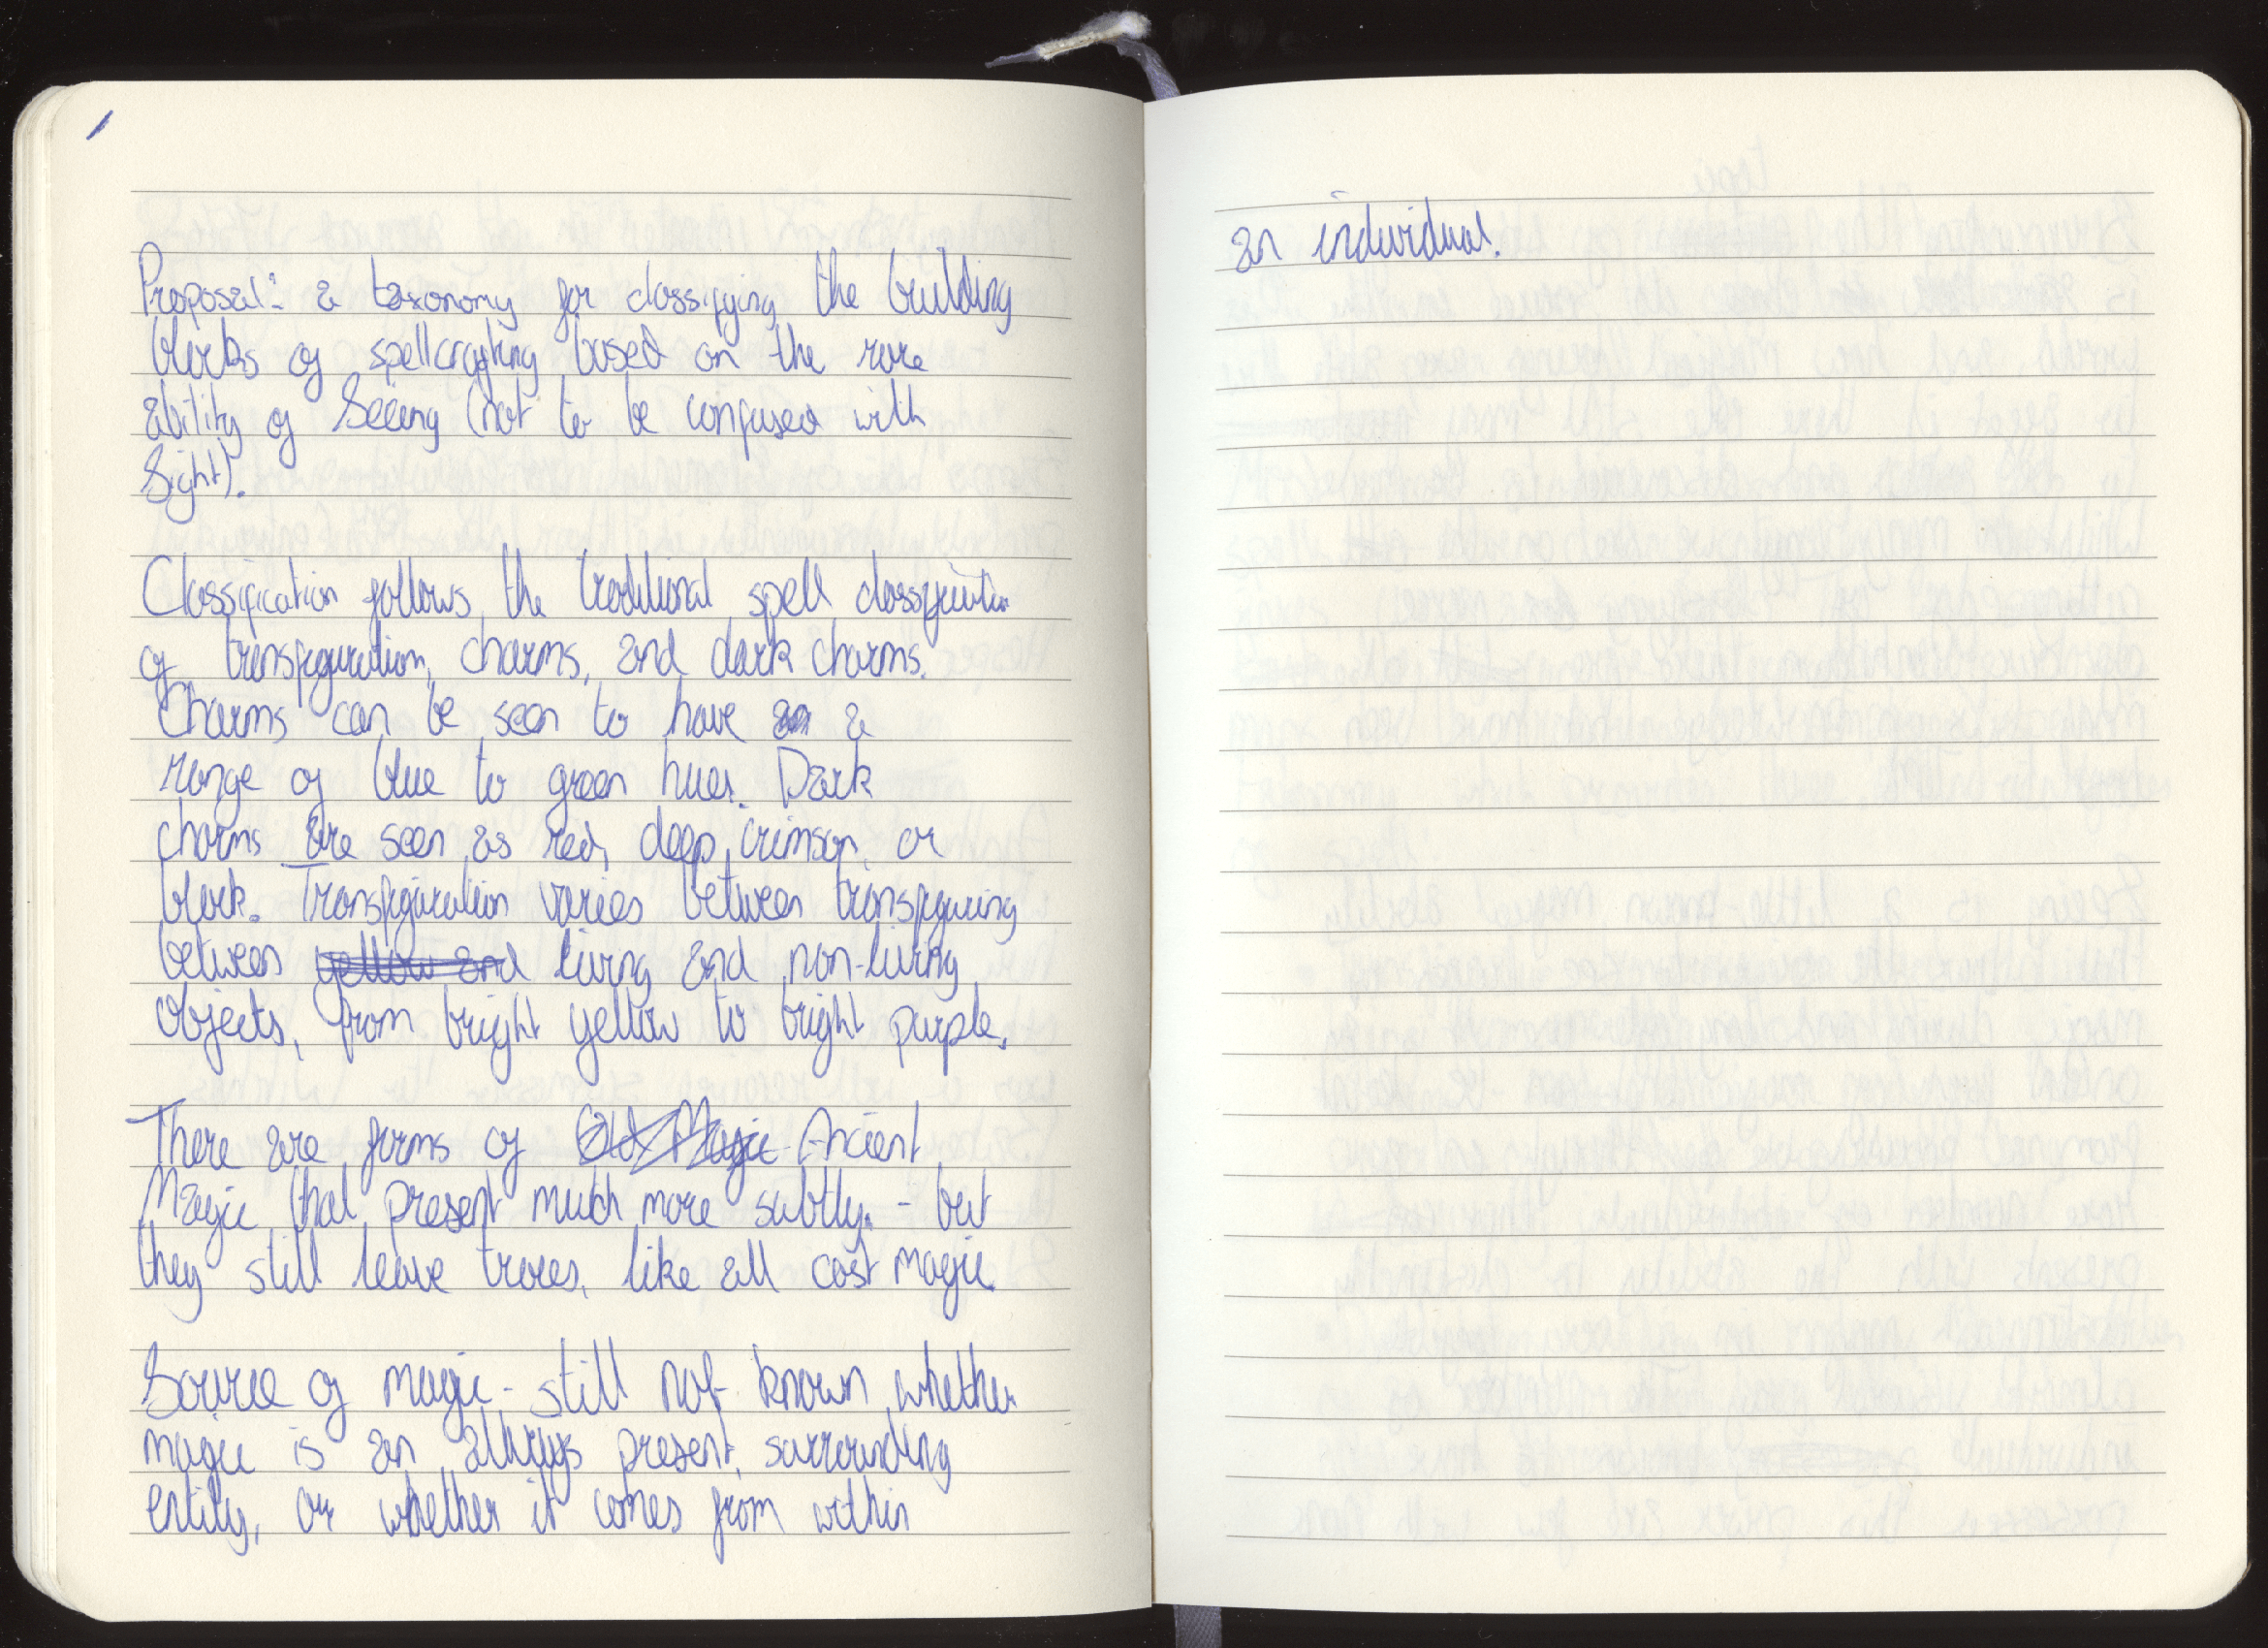 Proposal: a taxonomy for classifying the building
blocks of spellcrafting based on the rare
ability of Seeing (not to be confused with
Sight).
Classification follows the traditional spell classification
of transfiguration, charms, and dark charms.
Charms can be seen to have an a
range of blue to green hues. Dark
charms are seen as red, deep crimson, or
black. Transfiguration varies between transfiguring
between yellow and living and non-living
objects, from bright yellow to bright purple.
There are forms of Old Magic Ancient
Magic that present much more subtly. - but
they still leave traces, like all cast magic.
Source of magic - still not known whether
magic is an always present, surrounding
entity, or whether it comes from within
an individual.